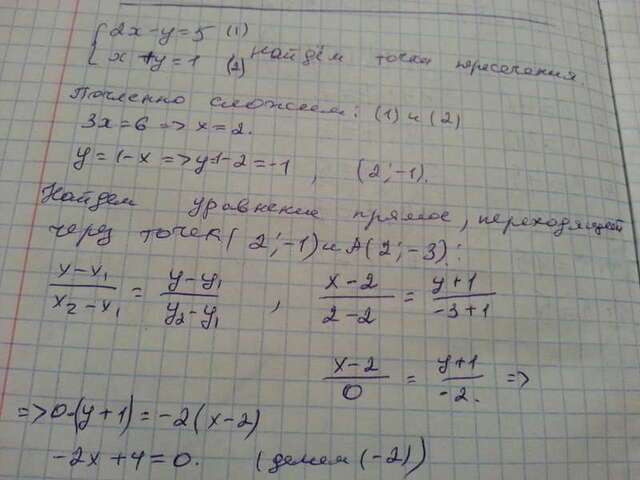 { 2x-y=5 (1)
x+y=1 (2) Найдём точка пересечения.
Почленно сложеем: (1) и (2)
3x=6 => x=2.
y=1-x => y=1-2=-1 , (2;-1).
Найдем уравнение прямое, переходящей
через точек (2;-1) и A(2;-3):
(x-x₁)/(x₂-x₁) = (y-y₁)/(y₂-y₁) , (x-2)/(2-2) = (y+1)/(-3+1)
(x-2)/0 = (y+1)/-2. =>
=> 0·(y+1)=-2(x-2)
-2x+4=0. (делем (-2))